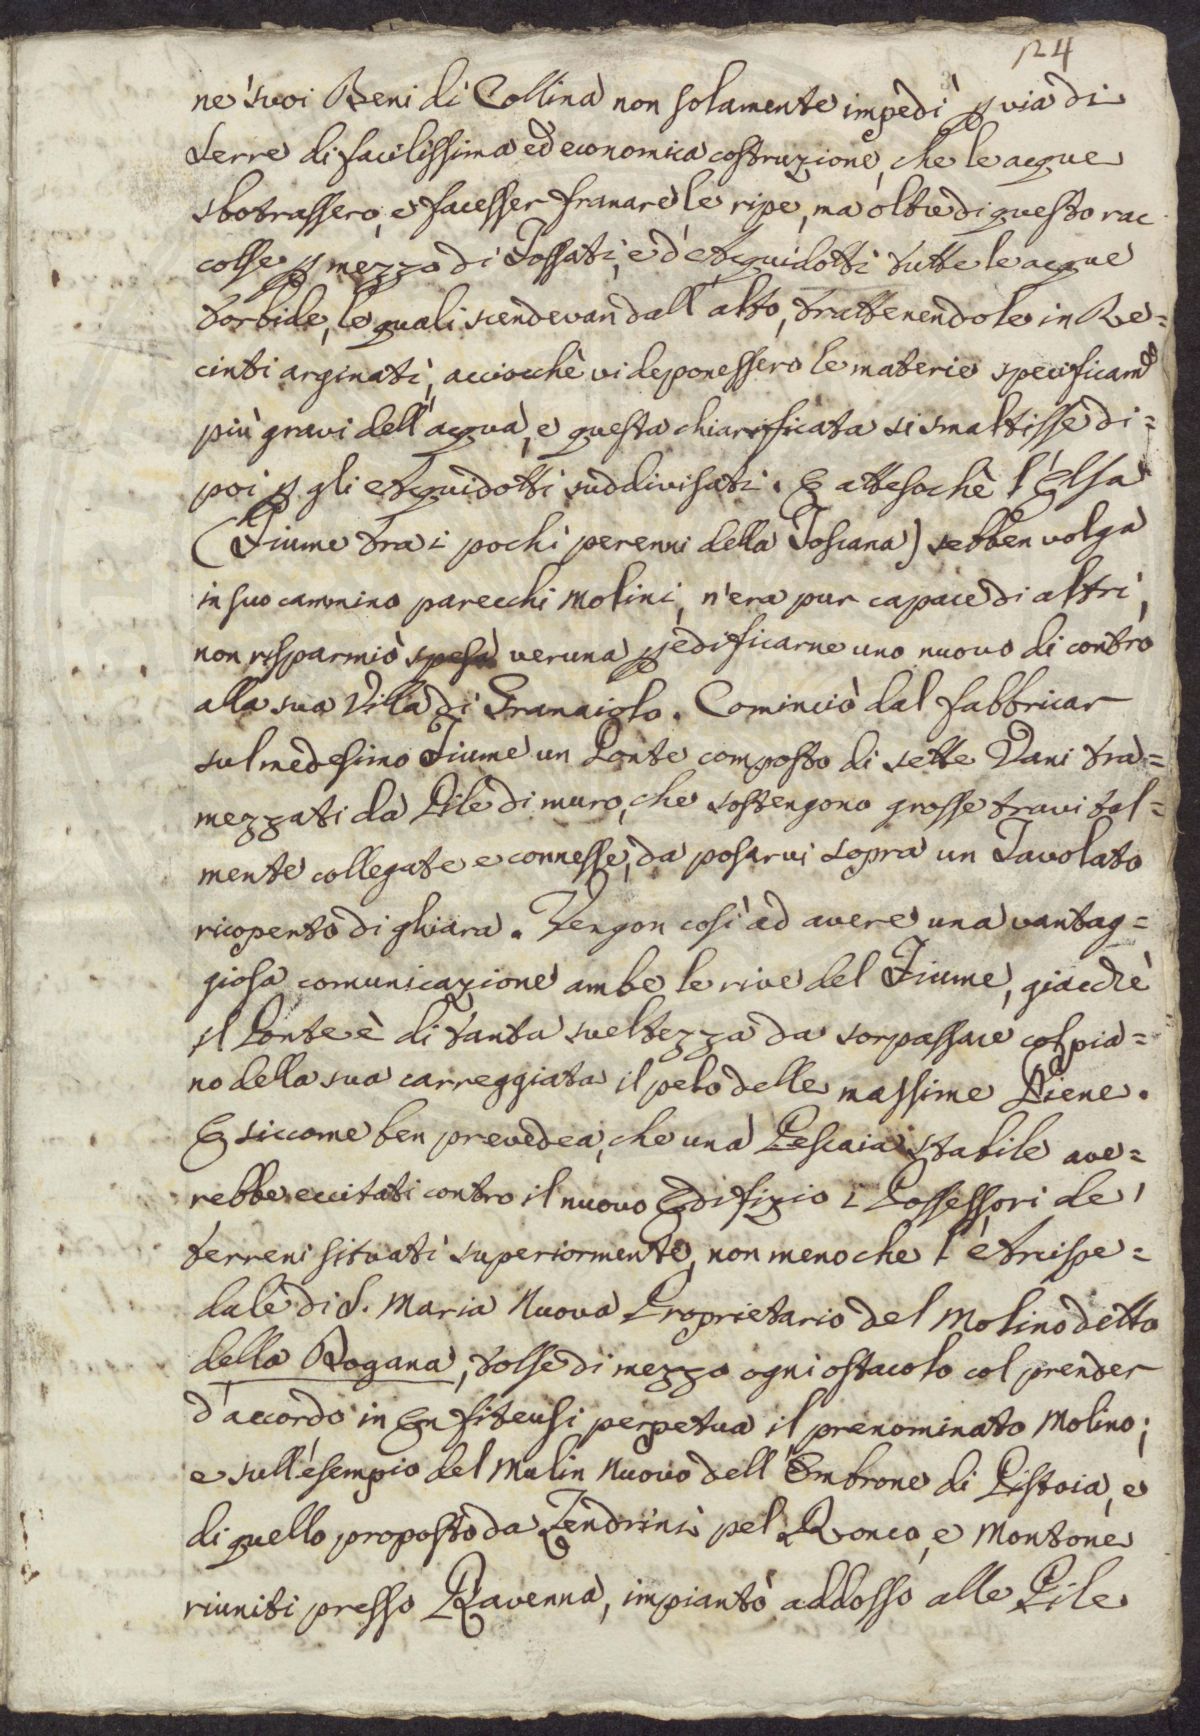 124
ne' suoi Beni di Collina non solamente impedì p via di
Serre di facilissima ed economica costruzione, che le acque
sbotrassero, e facesser franare le ripe, ma oltre di questo rac
colse p mezzo di Fossati, e d'Acquidotti tutte le acque
torbide, le quali scendevan dall'alto, trattenendole in Re=
cinti arginati, acciocchè vi deponessero le materie specificam.te
più gravi dell'acqua, e questa chiarificata si smaltisse di=
poi p gli Acquidotti suddivisati. E attesochè l'Elsa
(Fiume tra i pochi perenni della Toscana) sebben volga
in suo cammino parecchi Molini, n'era pur capace di altri,
non risparmiò spesa veruna p edificarne uno nuovo di contro
alla sua Villa di Granaiolo. Cominciò dal fabbricar
sul medesimo Fiume un Ponte composto di sette Vani tra=
mezzati da Pile di muro, che sostengono grosse travi tal=
mente collegate e connesse, da posarvi sopra un Tavolato
ricoperto di ghiara. Vengon così ad avere una vantag=
giosa comunicazione ambe le rive del Fiume, giacchè
il Ponte è di tanta sveltezza da sorpassare col pia=
no della sua carreggiata il pelo delle massime Piene.
E siccome ben prevedea, che una Pescaia stabile ave=
rebbe eccitati contro il nuovo Edifizio i Possessori de'
terreni situati superiormente, non meno che l'Arcispe=
dale di S. Maria Nuova Proprietario del Molino detto
della Dogana, tolse di mezzo ogni ostacolo col prender
d'accordo in Enfiteusi perpetua il prenominato Molino;
e sull'esempio del Mulin Nuovo dell'Ombrone di Pistoia, e
di quello proposto da Zendrini pel Ronco, e Montone
riuniti presso Ravenna, impiantò addosso alle Pile